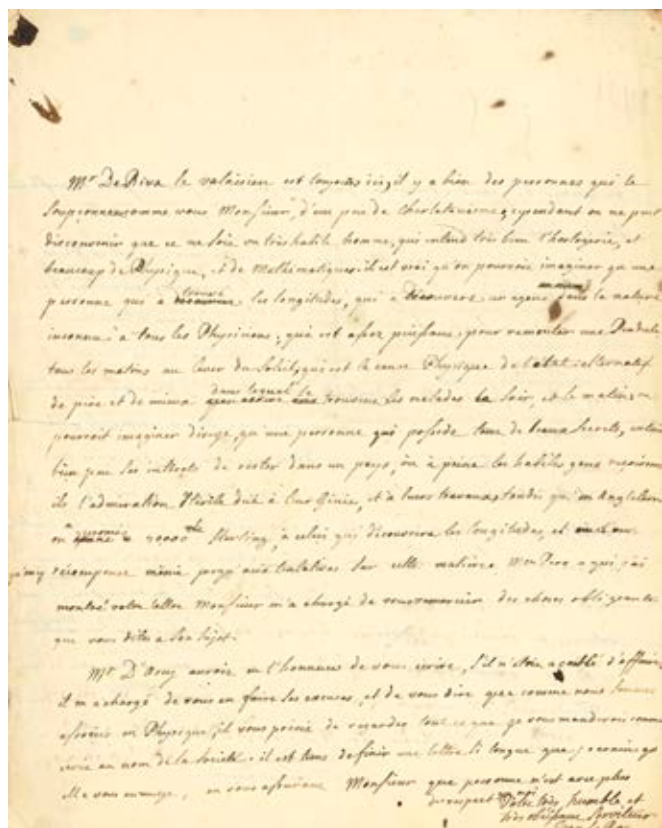 Mr De Riva le valaisien est toujours ici, il y a bien des personnes qui le
soupçonnent comme vous Monsieur, d'un peu de Charlatanisme, cependant on ne peut
disconvenir que ce ne soit un très habile homme, qui entend très bien l'horlogerie, et
beaucoup de Physique, et de Mathématiques: il est vrai qu'on pourroit imaginer qu'une
personne qui a trouvé les longitudes, qui a découvert un agent dans la nature
inconnu à tous les Physiciens, qui est assez puissant pour remonter une Pendule
tous les matins au lever du Soleil, qui est la cause Physique de l'état alternatif
de pire et de mieux dans lequel se trouvent les malades le soir, et le matin; on
pourroit imaginer dis-je, qu'une personne qui possède tant de beaux secrets, entend
bien peu ses intérêts de rester dans un pays, où à peine les habiles gens reçoivent
ils l'admiration stérile due à leur génie, et à leurs travaux, tandis qu'en Angleterre
on a promis 20000 Sterling, à celui qui découvrira les longitudes, et
récompense même jusqu'aux tentatives sur cette matière. Mon Pere a qui j'ai
montré votre lettre Monsieur m'a chargé de vous remercier des choses obligeantes
que vous dites a son sujet.
Mr D'Arcy auroit eu l'honneur de vous écrire, s'il n'étoit accablé d'affaires
il m'a chargé de vous en faire ses excuses, et de vous dire que comme nous sommes
associés en Physique, il vous prioit de regarder tout ce que je vous manderois comme
écrit au nom de la société: il est tems de finir une lettre si longue que je crains qu'
elle vous ennuye, en vous assurant Monsieur que personne n'est avec plus
de respect Votre très humble, et
très obéissant Serviteur